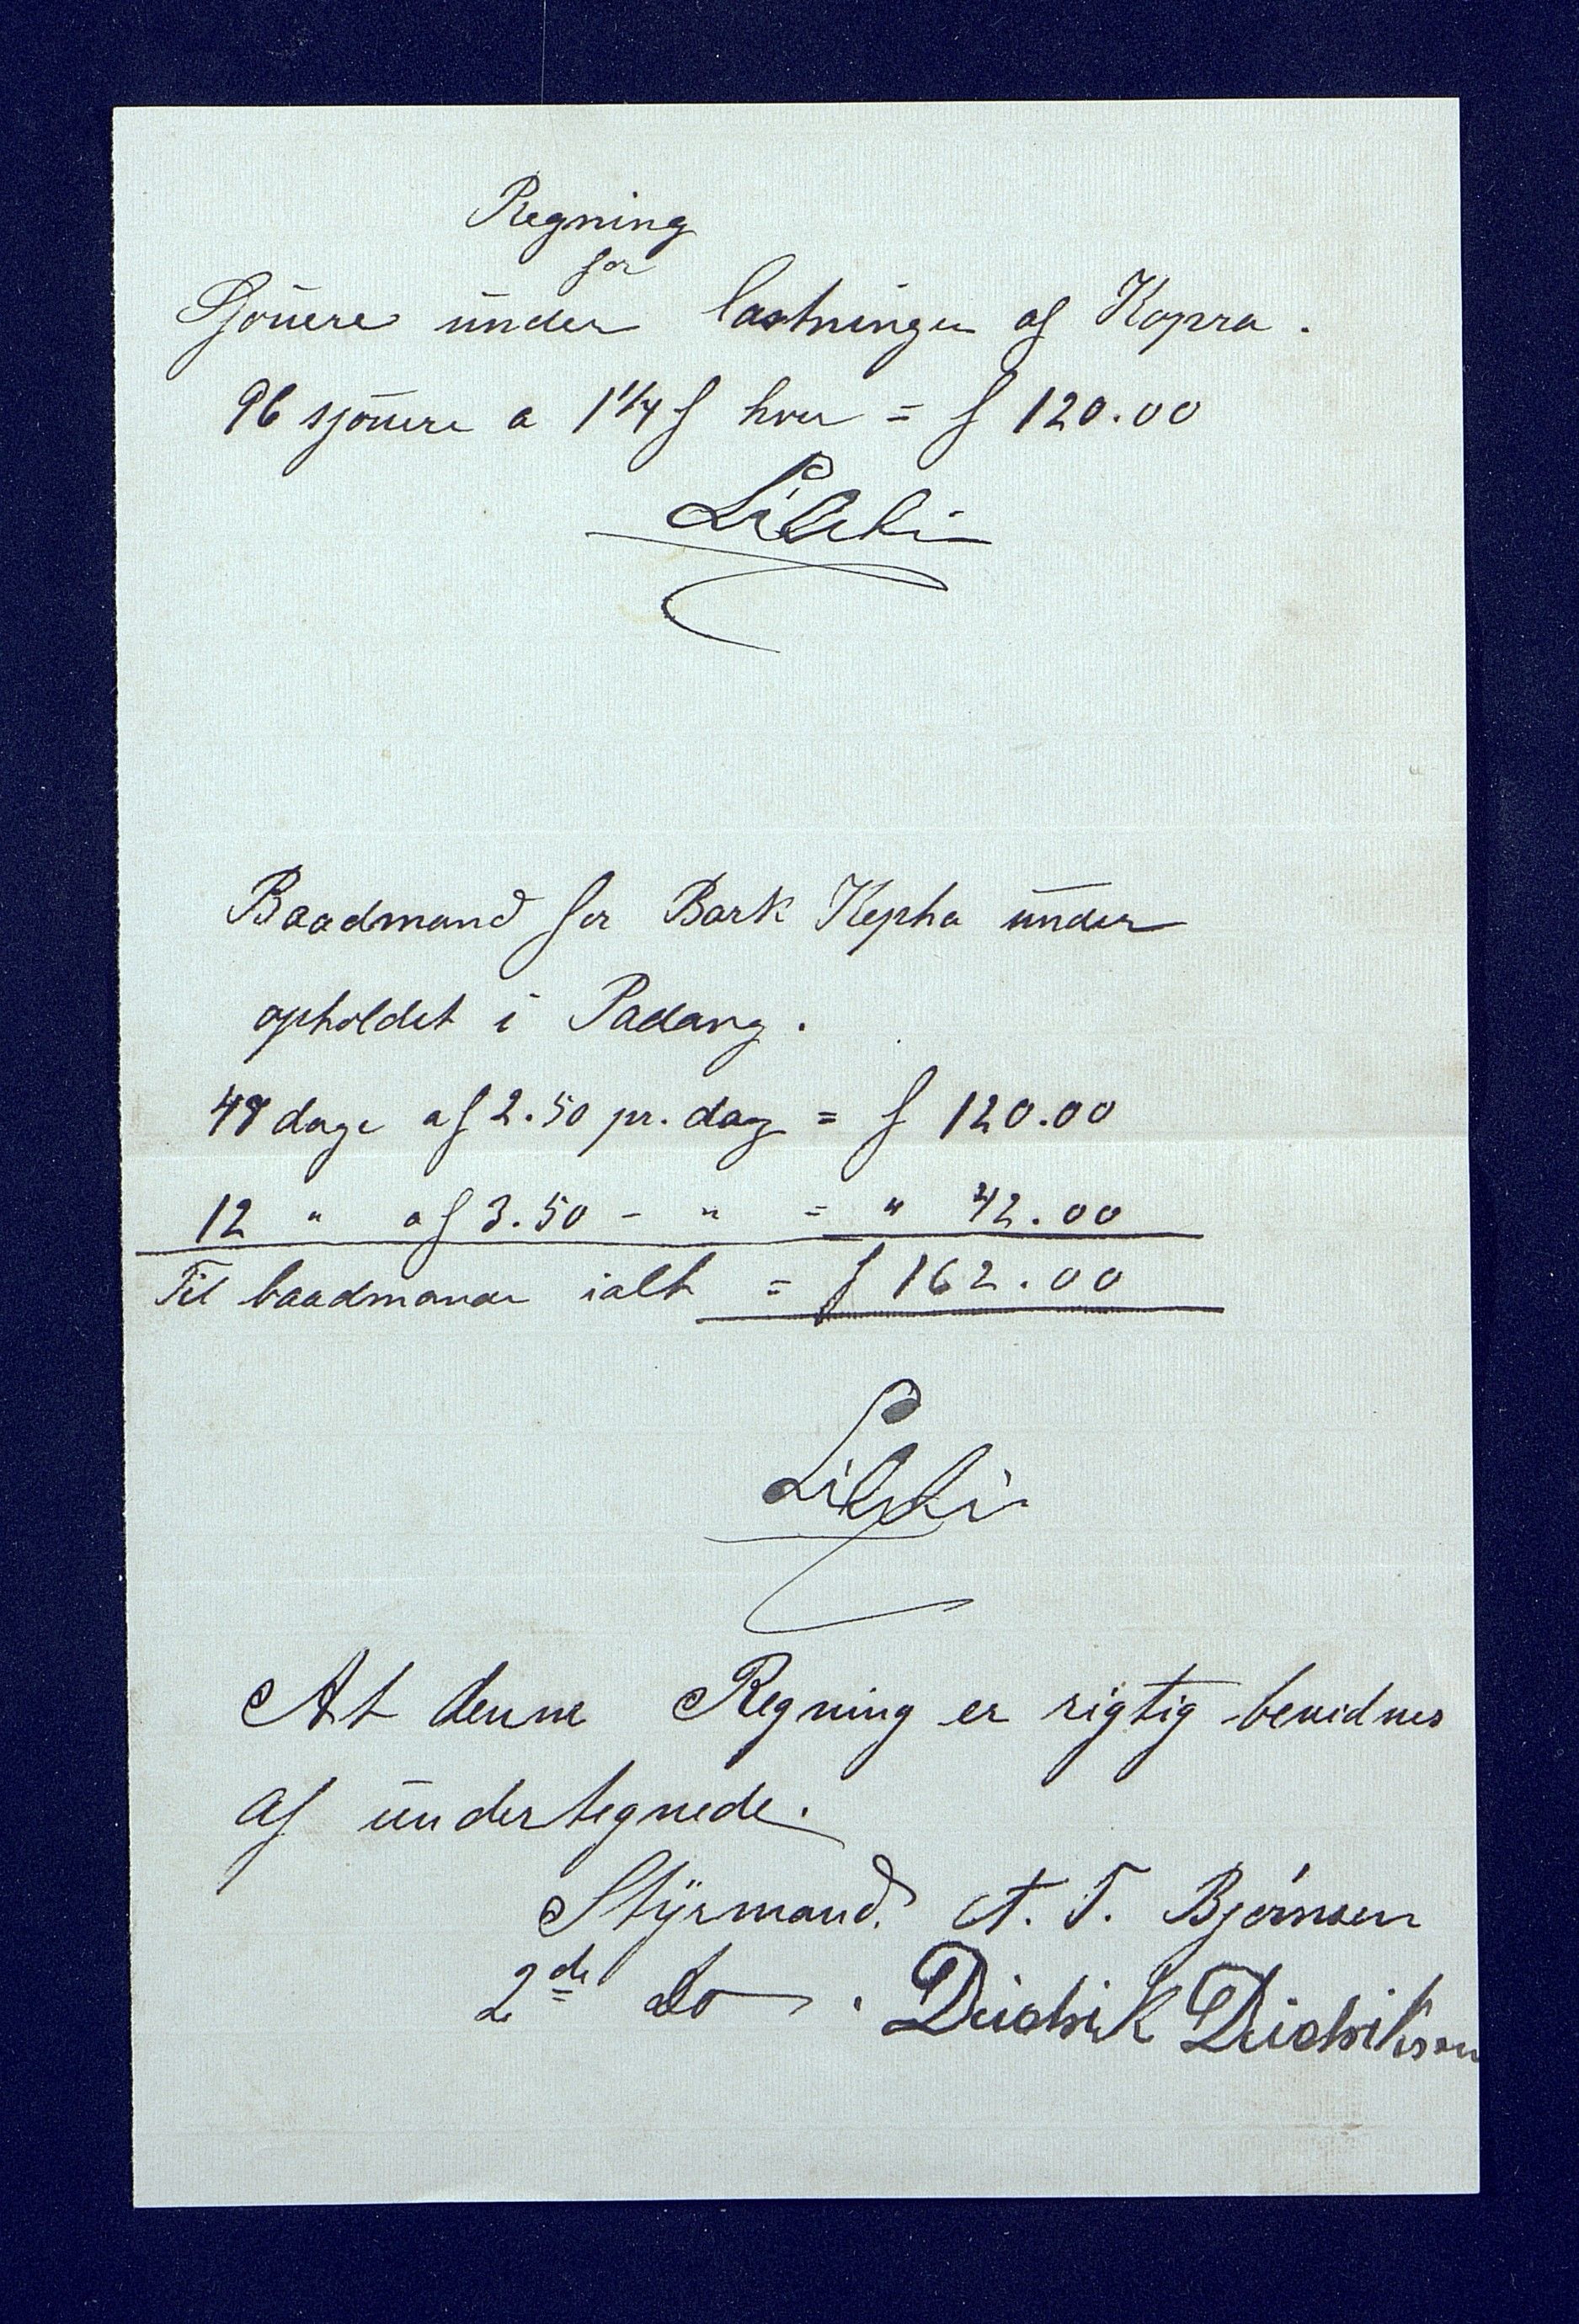 Regning
for
Sjouere under lastningen af Kopra.
96 sjouere a 1 1/4 f hver = f 120.00
Baadmand for Bark Kepha under
opholdet i Padang.
48 dage a f 2.50 pr. dag = f 120.00
12 " a f 3.50 - " = " 42.00
Til baadmand ialt = f 162.00
At denne Regning er rigtig bevidnes
af undertegnede.
Styrmand. A. T. Bjørnsen
2de Do. Didrik Didriksen